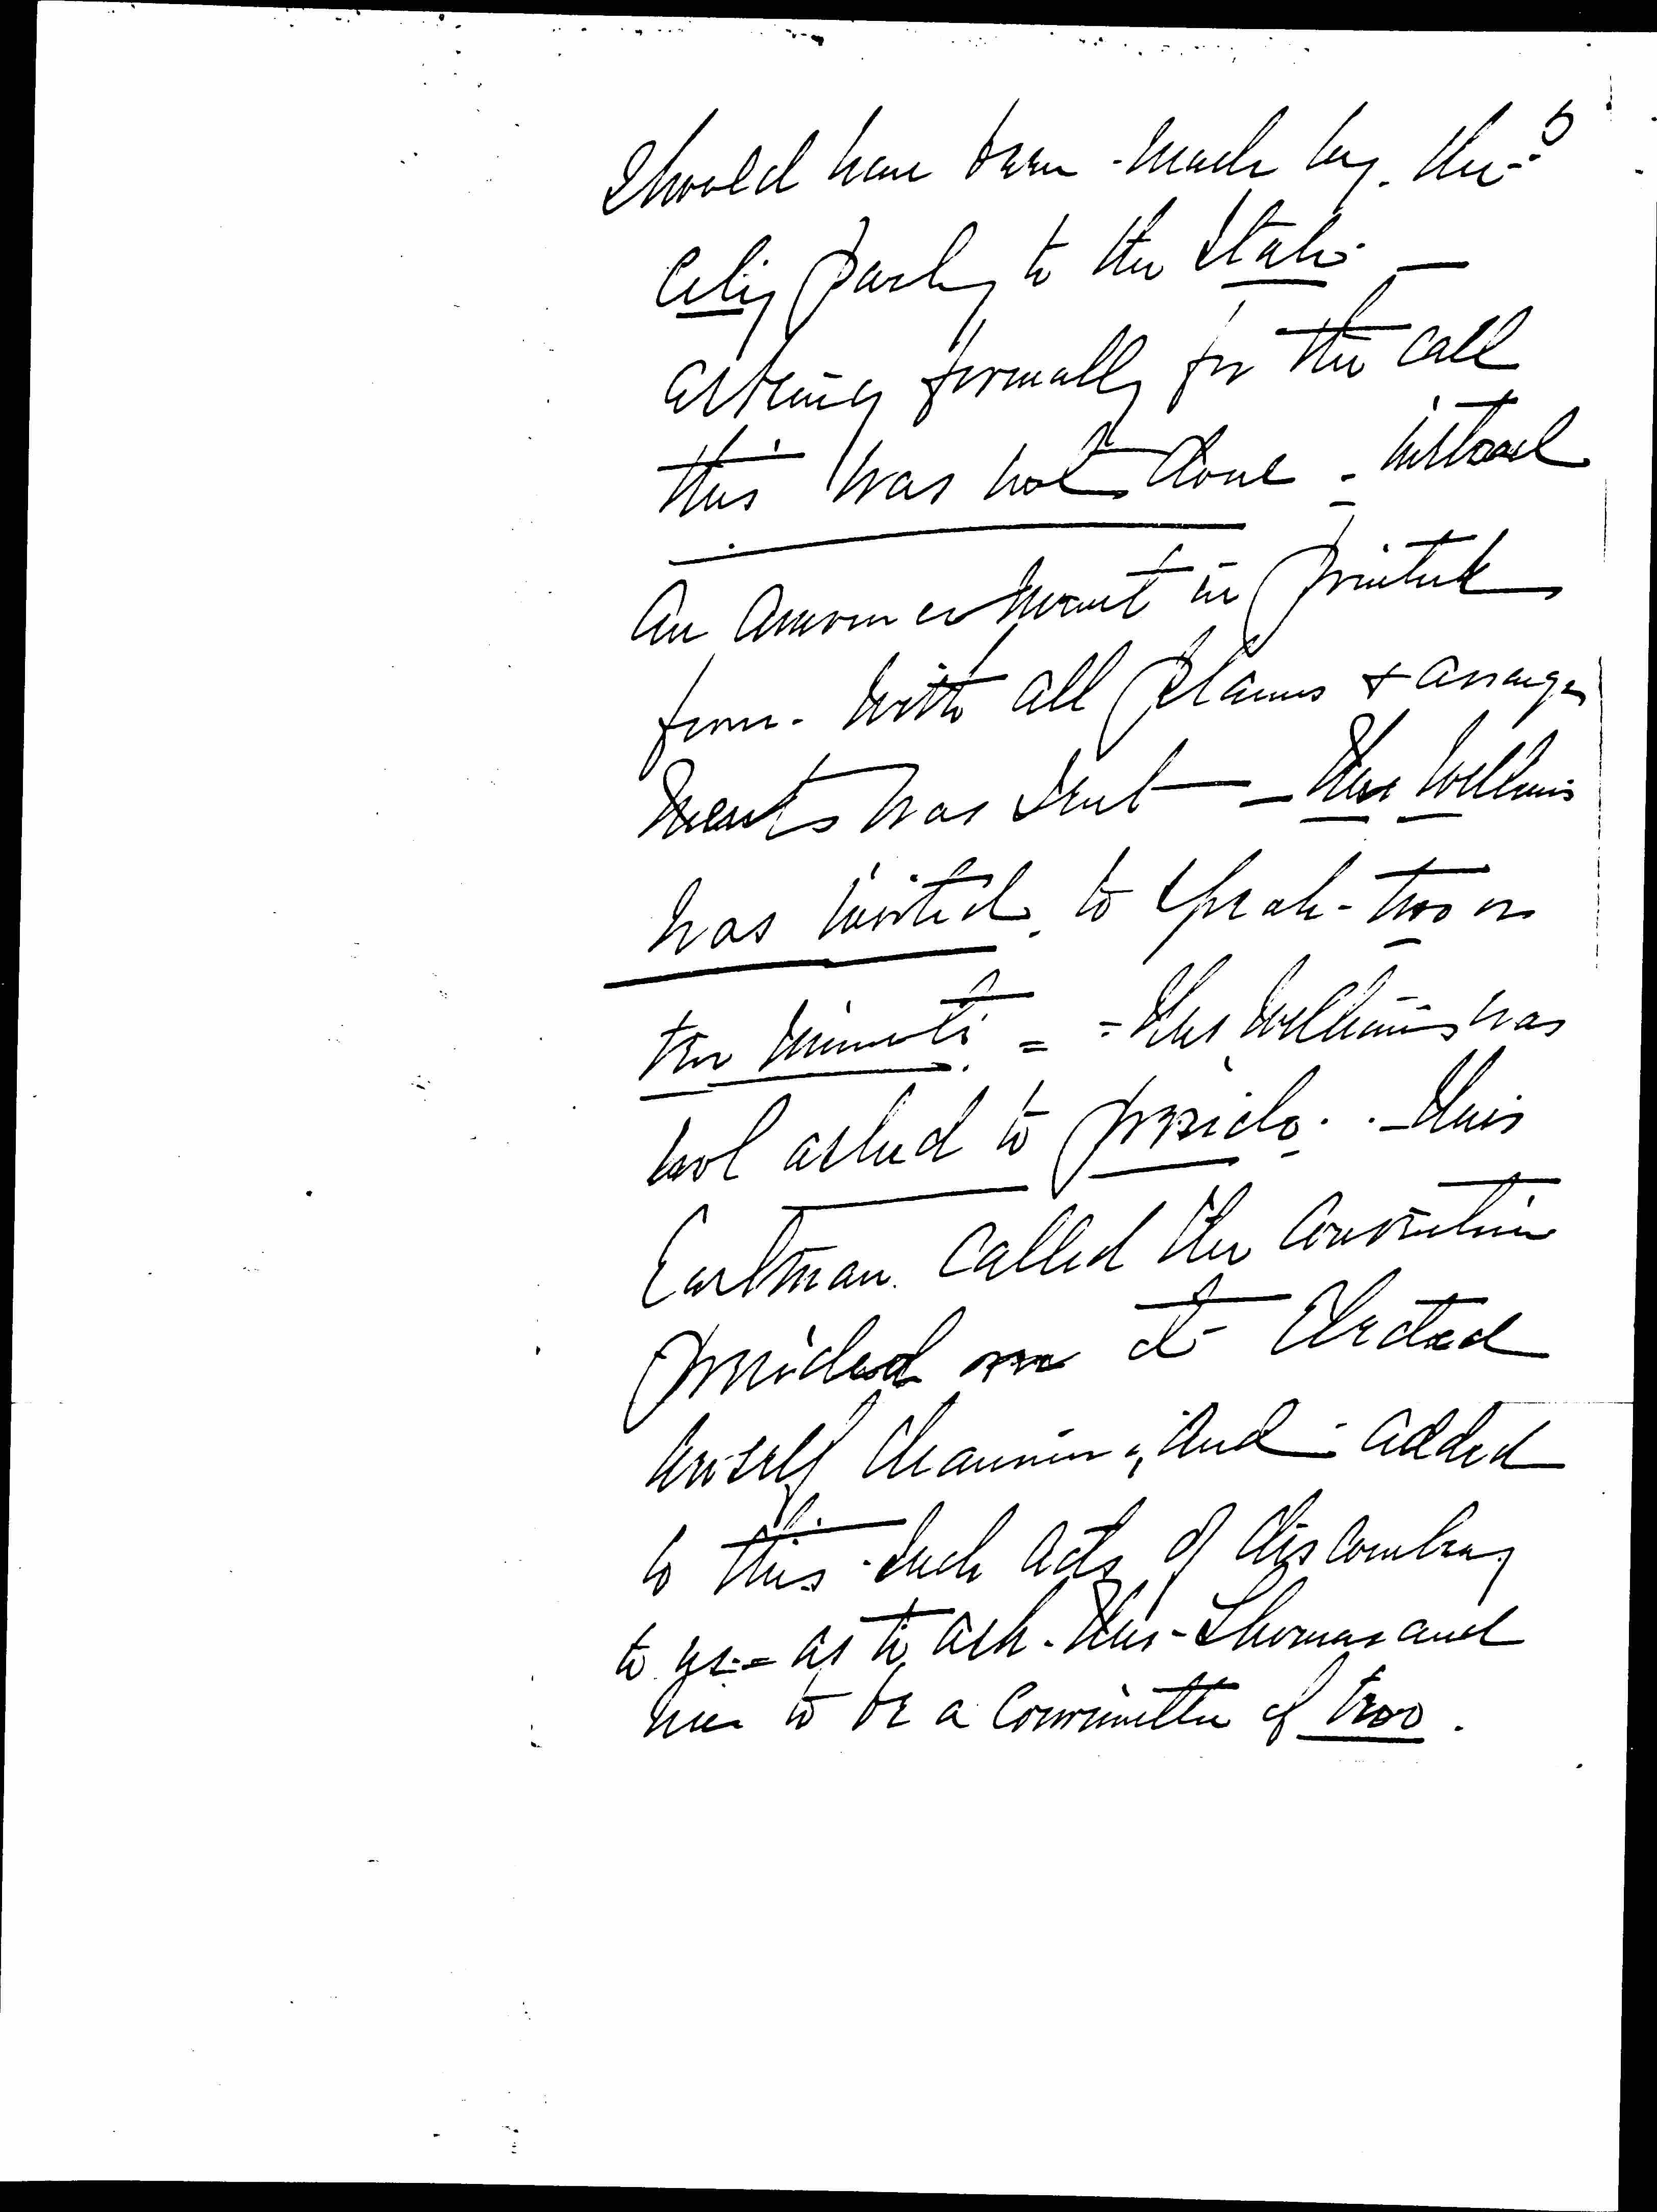 5
should have been made by the
City party to the State —
asking formally for the call
this was not done - instead
an announcement in printed
form - with all plans & arrange
ments was sent — Mrs Williams
was invited to speak - two or
ten minutes = - Mrs Williams was
not asked to preside. - Miss
Eastman called the Convention
presided it - Elected
herself chairman, and - added
to this such acts of discourtesy
to us - as to ask - Mrs - Thomas and
me to be a Committee of two.